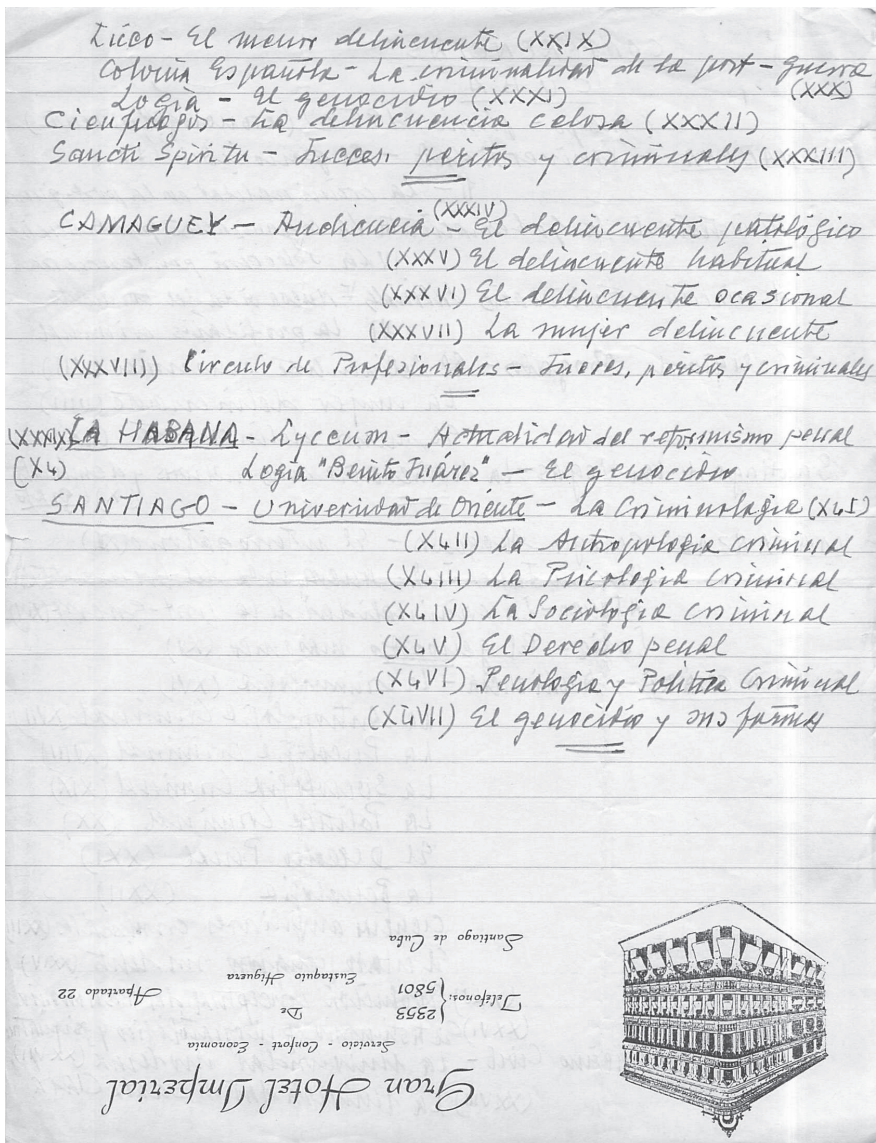 Liceo - El menor delincuente (XXIX)
Colonia Española - La criminalidad de la post-guerra (XXX)
Logia - El genocidio (XXXI)
Cienfuegos - La delincuencia celosa (XXXII)
Sancti Spiritu - Jueces, peritos y criminales (XXXIII)
CAMAGUEY - Audiencia - (XXXIV) El delincuente patológico
(XXXV) El delincuente habitual
(XXXVI) El delincuente ocasional
(XXXVII) La mujer delincuente
(XXXVIII) Circulo de Profesionales - Jueces, peritos y criminales
(XXXIX) LA HABANA - Lyceum - Actualidad del reformismo penal
(XL) Logia "Benito Juárez" - El genocidio
SANTIAGO - Universidad de Oriente - La Criminologia (XLI)
(XLII) La Antropologia criminal
(XLIII) La Psicologia criminal
(XLIV) La Sociologia criminal
(XLV) El Derecho penal
(XLVI) Penologia y Politica Criminal
(XLVII) El genocidio y sus formas
Gran Hotel Imperial
Servicio - Confort - Economia
Teléfonos: 2353
5801
De
Eustaquio Higuera
Apartado 22
Santiago de Cuba